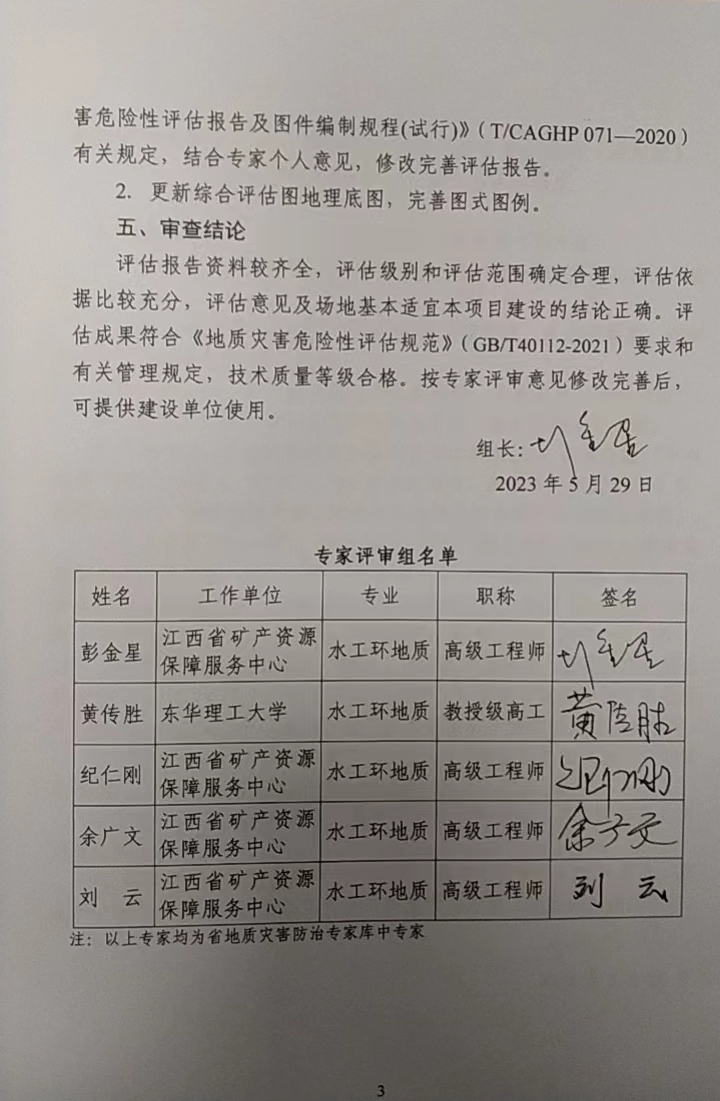 害危险性评估报告及图件编制规程(试行)》（T/CAGHP 071—2020）
有关规定，结合专家个人意见，修改完善评估报告。
2. 更新综合评估图地理底图，完善图式图例。
五、审查结论
评估报告资料较齐全，评估级别和评估范围确定合理，评估依
据比较充分，评估意见及场地基本适宜本项目建设的结论正确。评
估成果符合《地质灾害危险性评估规范》（GB/T40112-2021）要求和
有关管理规定，技术质量等级合格。按专家评审意见修改完善后，
可提供建设单位使用。
组长：彭金星
2023 年 5 月 29 日
专家评审组名单
姓名 工作单位 专业 职称 签名
彭金星 江西省矿产资源保障服务中心 水工环地质 高级工程师 彭金星
黄传胜 东华理工大学 水工环地质 教授级高工 黄传胜
纪仁刚 江西省矿产资源保障服务中心 水工环地质 高级工程师 纪仁刚
余广文 江西省矿产资源保障服务中心 水工环地质 高级工程师 余广文
刘　云 江西省矿产资源保障服务中心 水工环地质 高级工程师 刘云
注：以上专家均为省地质灾害防治专家库中专家
3